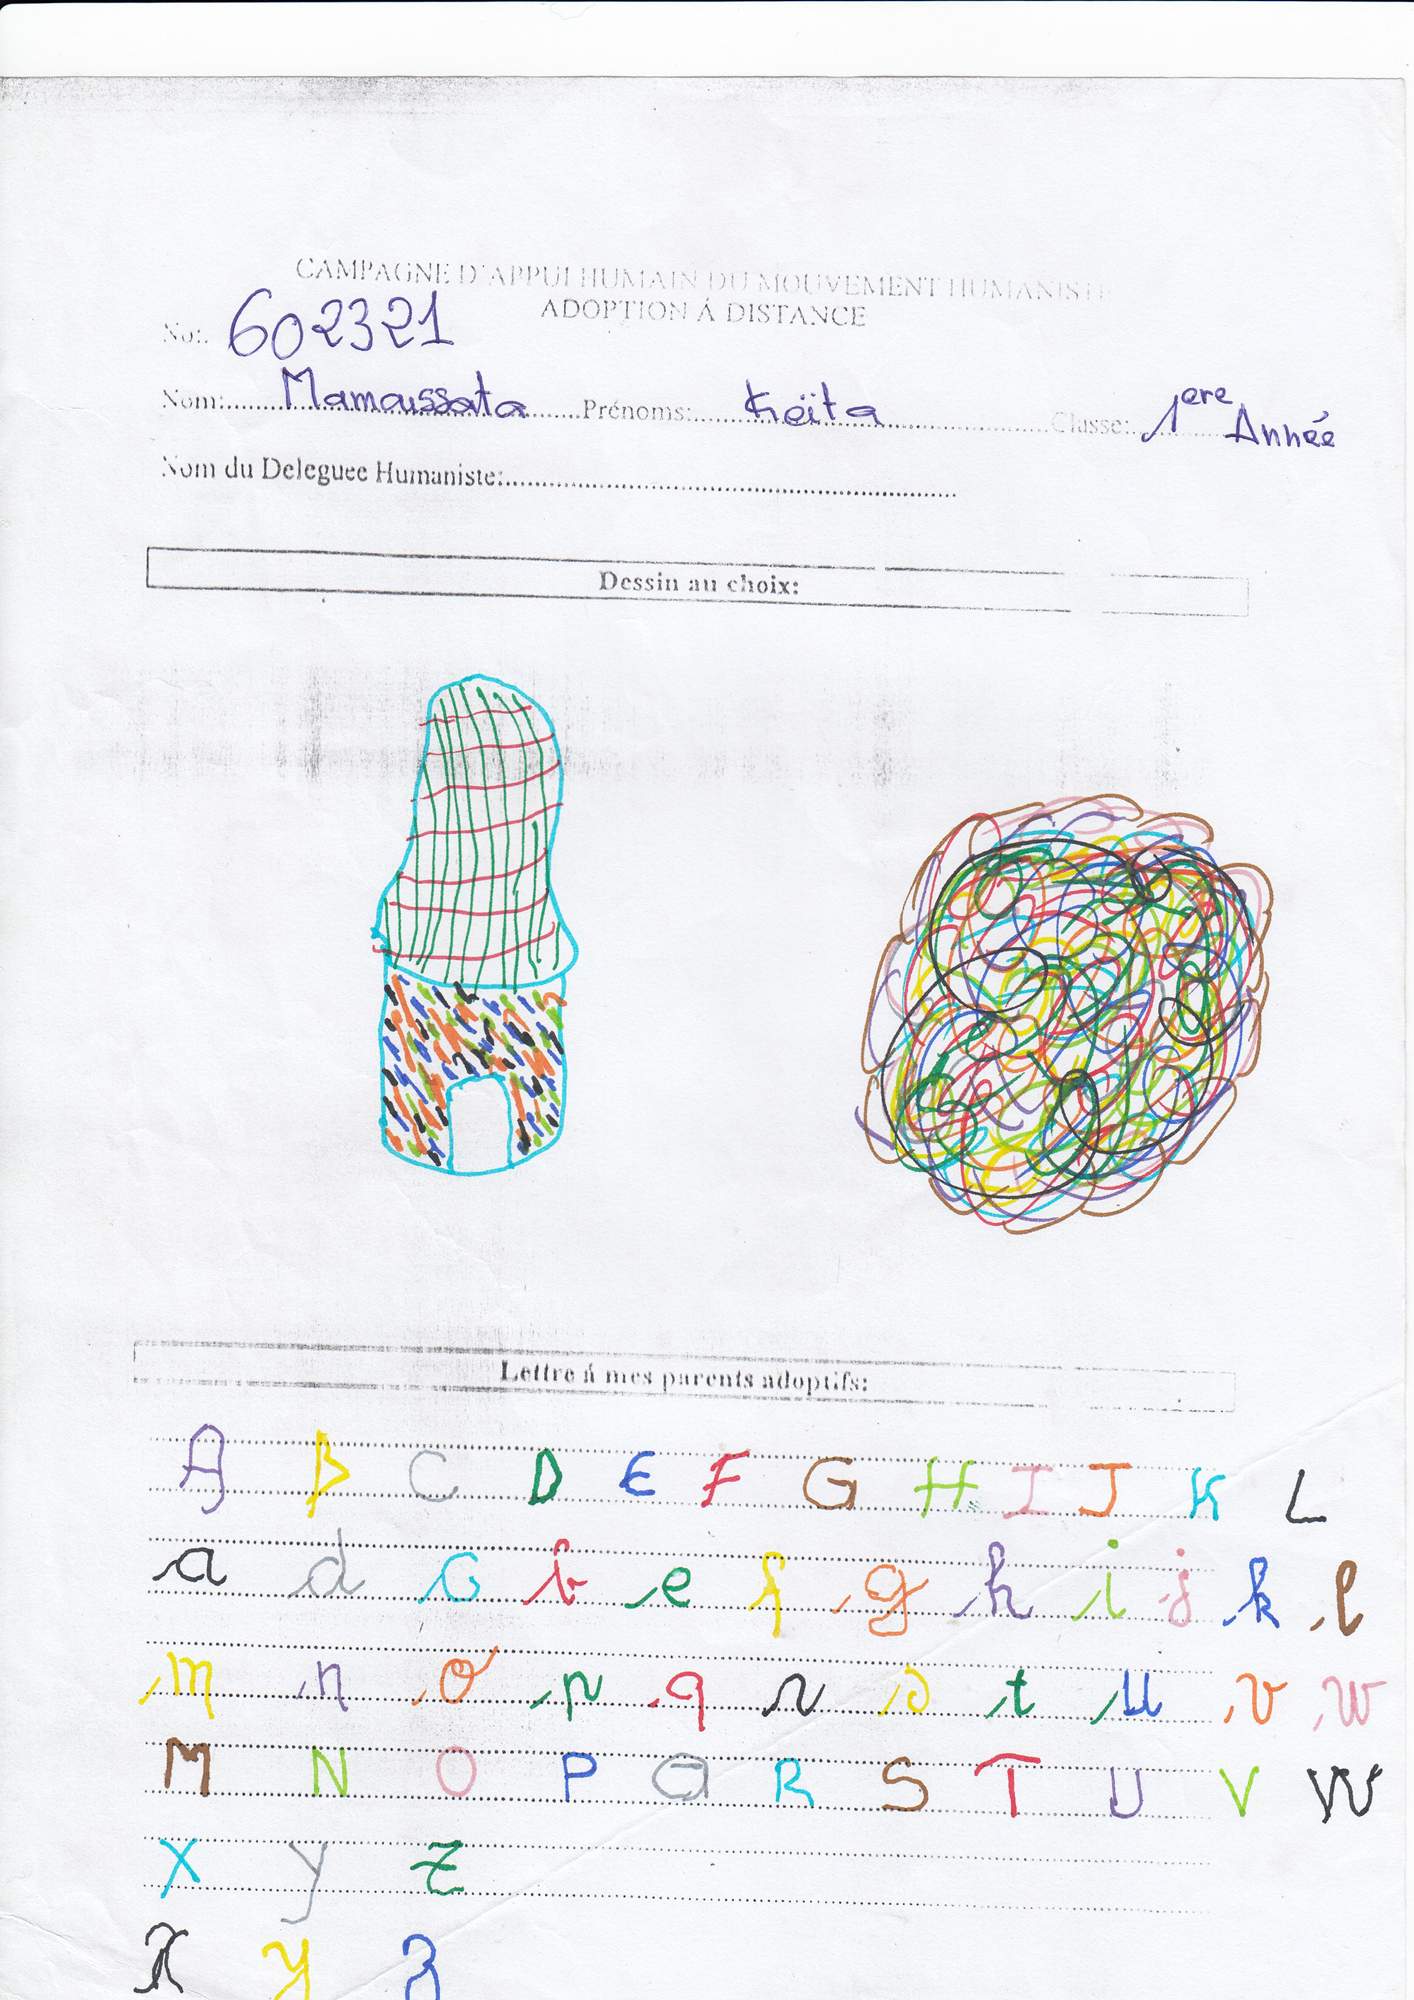 CAMPAGNE D'APPUI HUMAIN DU MOUVEMENT HUMANISTE
ADOPTION Á DISTANCE
No:. 602321
Nom:.......... Mamaissata ......Prénoms:...... Keïta ...............Classe:.. 1ere Année
Nom du Deleguee Humaniste:..................................................
Dessin au choix:
Lettre á mes parents adoptifs:
A B C D E F G H I J K L
a d c b e f g h i j k l
m n o p q r s t u v w
M N O P Q R S T U V W
X y Z
x y z